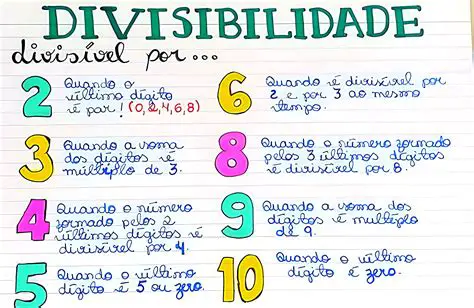 DIVISIBILIDADE
divisível por...
2 Quando o
último dígito
é par! (0,2,4,6,8)
3 Quando a soma
dos dígitos é
múltiplo de 3.
4 Quando o número
formado pelos 2
últimos dígitos é
divisível por 4.
5 Quando o último
dígito é 5 ou zero.
6 Quando é divisível por
2 e por 3 ao mesmo
tempo.
8 Quando o número formado
pelos 3 últimos dígitos
é divisível por 8.
9 Quando a soma dos
dígitos é multiplo
de 9.
10 Quando o último
dígito é zero.